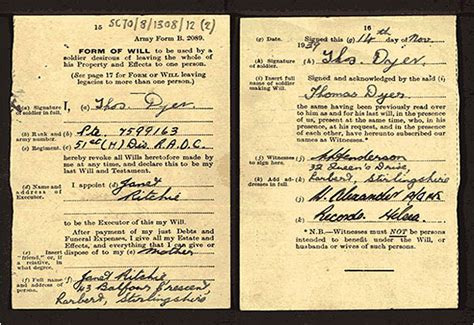 15 SC70/8/1308/12 (2)
Army Form B. 2089.
FORM OF WILL to be used by a
soldier desirous of leaving the whole of
his Property and Effects to one person.
(See page 17 for FORM OF WILL leaving
legacies to more than one person.)
(a) Signature of soldier in full. I, (a) Thos. Dyer
(b) Rank and Army number. (b) Pte. 7599163
(c) Regiment. (c) 51st (H) Div. R.A.O.C.
hereby revoke all Wills heretofore made
by me at any time, and declare this to be my
last Will and Testament.
(d) Name and address of Executor. I appoint (d) Janet
Ritchie
to be the Executor of this my Will.
After payment of my just Debts and
Funeral Expenses, I give all my Estate and
Effects, and everything that I can give or
(e) Insert "friend," or, if a relative, in what degree. dispose of to my (e) Mother
(f) Full name and address of person. (f) Janet Ritchie
43 Balfour Crescent,
Larbert, Stirlingshire
16
(g) Date. Signed this (g) 14th day of Nov.
1939
(h) Signature of soldier. (h) Thos. Dyer
Signed and acknowledged by the said (i)
(i) Insert full name of soldier making Will. Thomas Dyer
the same having been previously read over
to him as and for his last will, in the presence
of us, present at the same time, who, in his
presence, at his request, and in the presence
of each other, have hereunto subscribed our
names as Witnesses.
(j) Witnesses to sign here. (j) Henderson
(k) Addresses in full. 32 Queen's Drive,
Larbert, Stirlingshire
Alexander
* N.B.—Witnesses MUST NOT be persons
intended to benefit under the Will, or
husbands or wives of such persons.